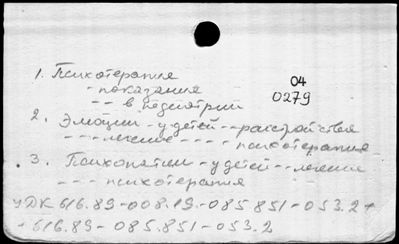 1. Психотерапия
- показания
- - в педиатрии
04
0279
2. Эмоции - у детей - - расстройства
- - - лечение - - - - психотерапия
3. Психопатии - у детей - - лечение
- - - психотерапия
УДК 616.89-008.19-085.851-053.2 +
+ 616.89-085.851-053.2